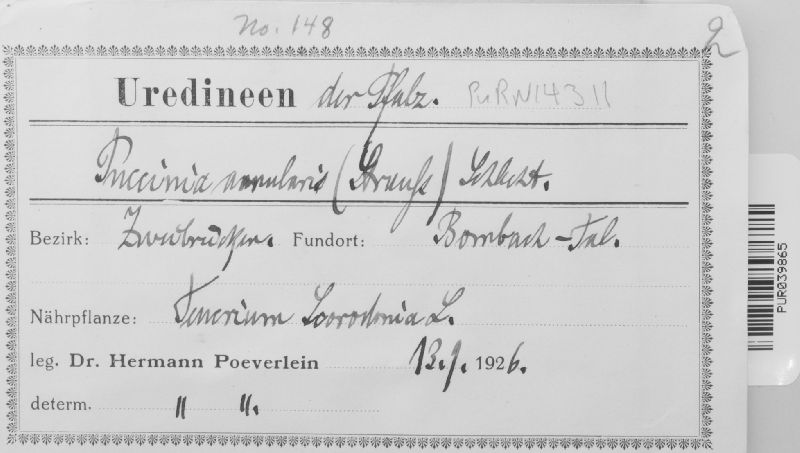 No. 148
2
Uredineen der Pfalz. PuRN14311
Puccinia annularis (Strauss) Schlecht.
Bezirk: Zweibrücken. Fundort: Bombach-Tal.
Nährpflanze: Teucrium Scorodonia L.
leg. Dr. Hermann Poeverlein 13.9. 1926.
determ. " ".
PUR039865